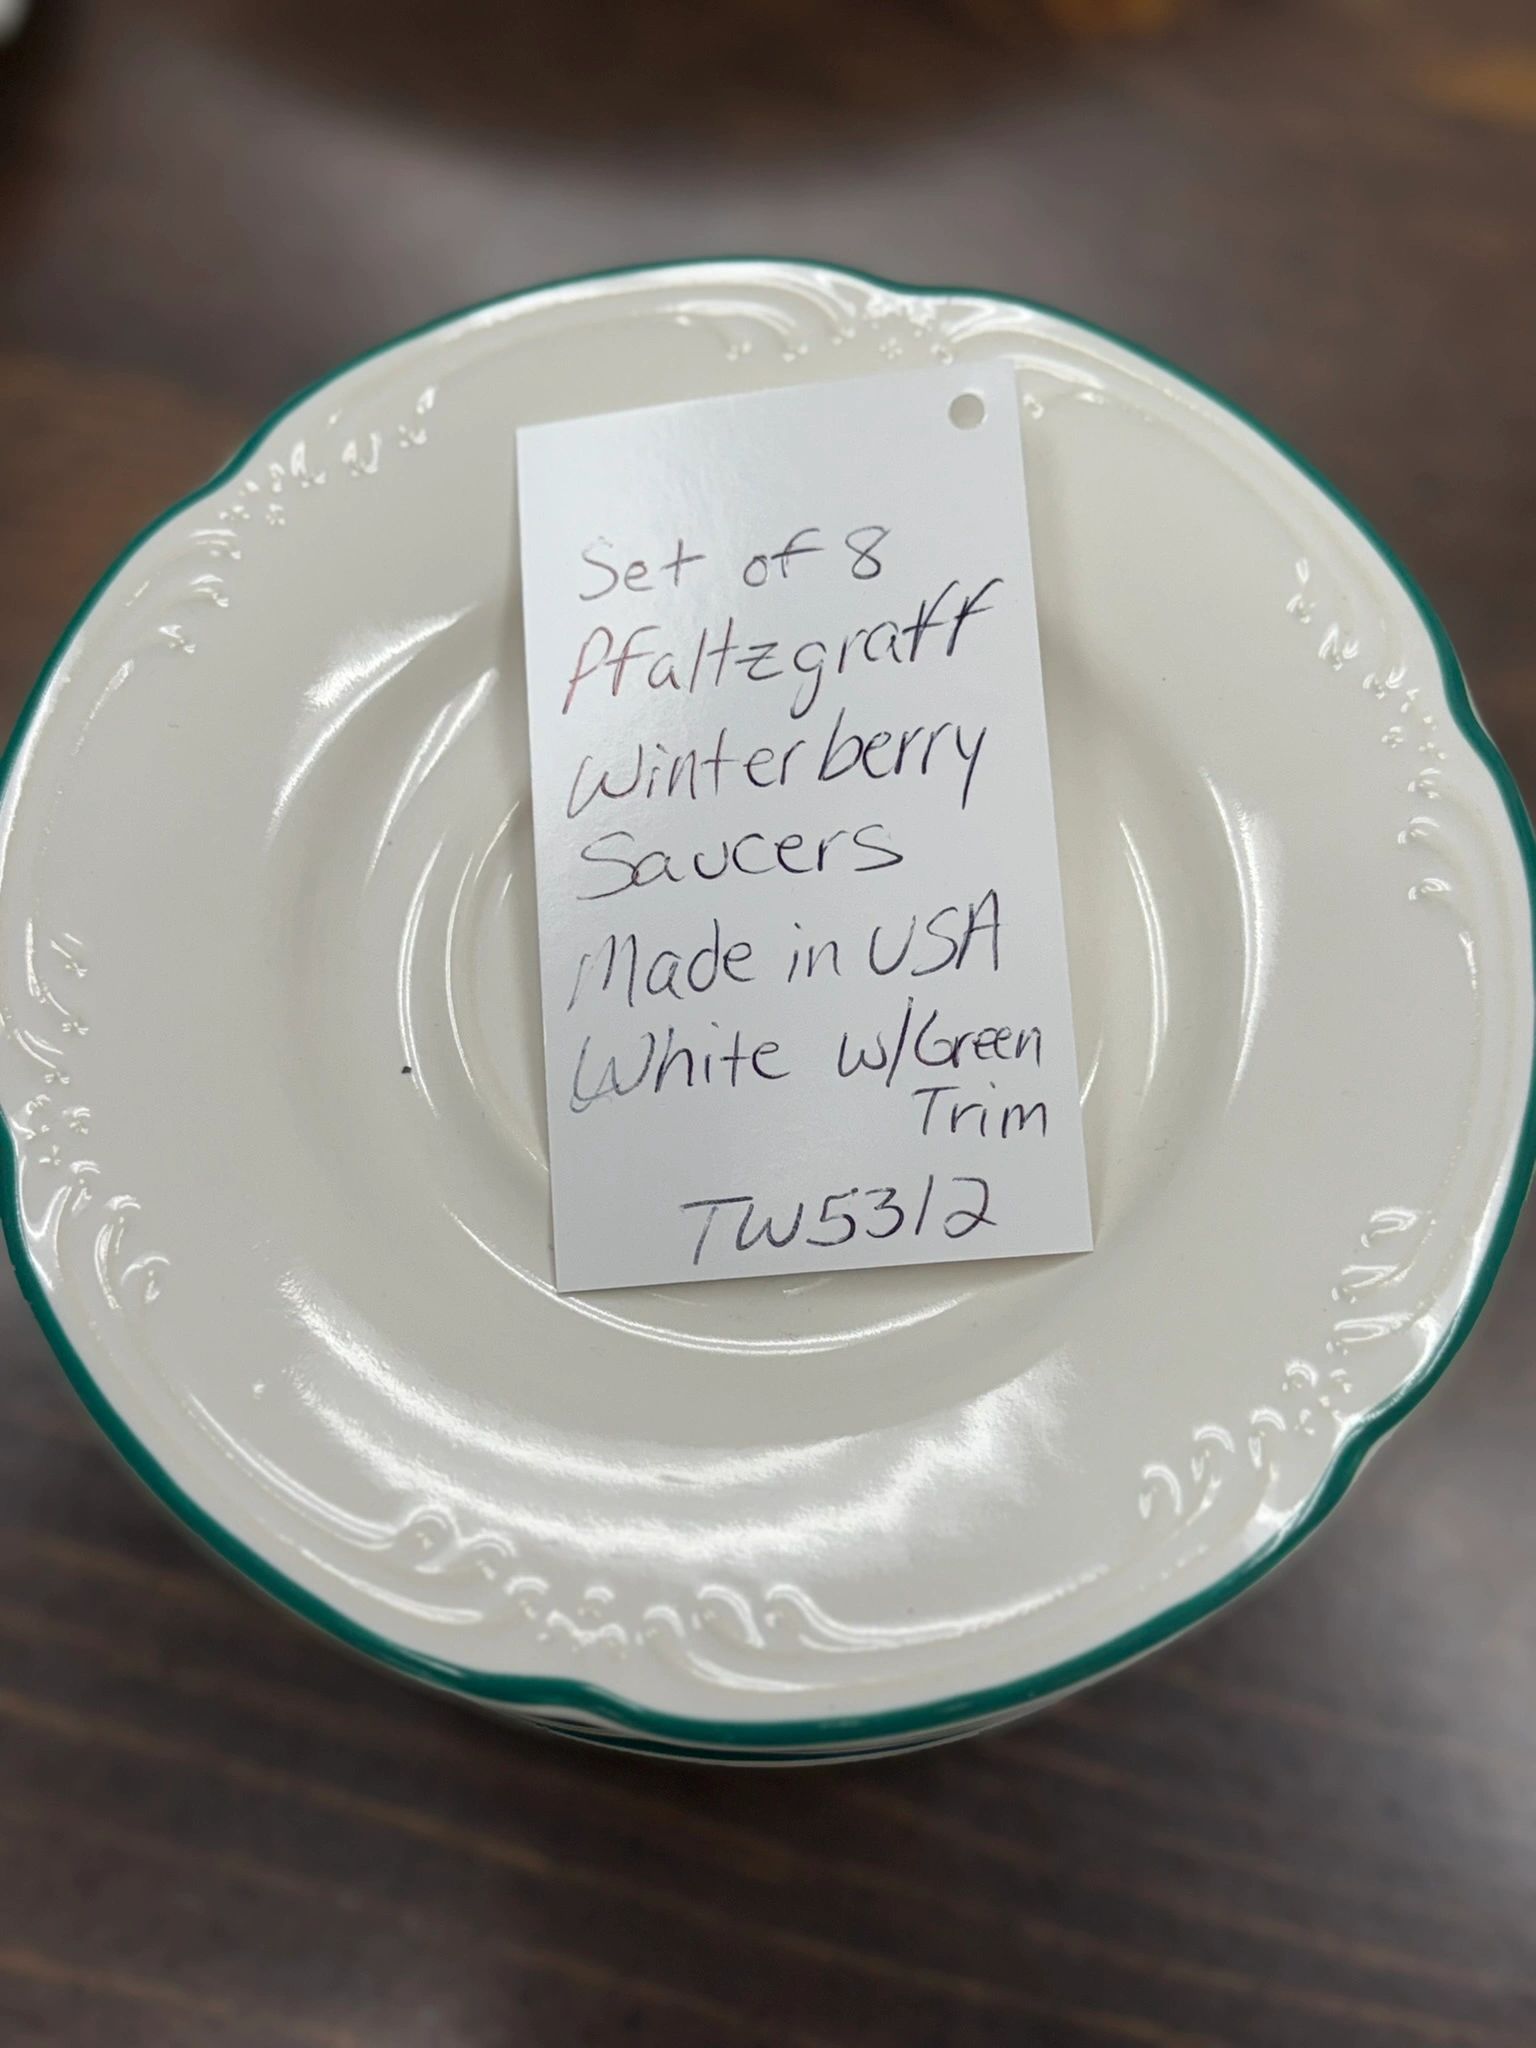 Set of 8
Pfaltzgraff
Winterberry
Saucers
Made in USA
White w/Green
Trim
TW5312